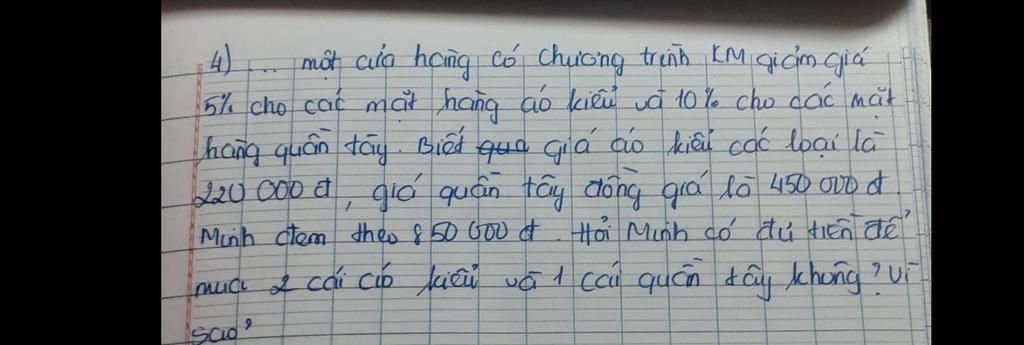 4) ... một cửa hàng có chương trình KM giảm giá
5% cho các mặt hàng áo kiểu và 10% cho các mặt
hàng quần tây. Biết qua giá áo kiểu các loại là
220 000 đ, giá quần tây đồng giá là 450 000 đ
Minh đem theo 850 000 đ. Hỏi Minh có đủ tiền để
mua 2 cái áo kiểu và 1 cái quần tây không? Vì
sao?